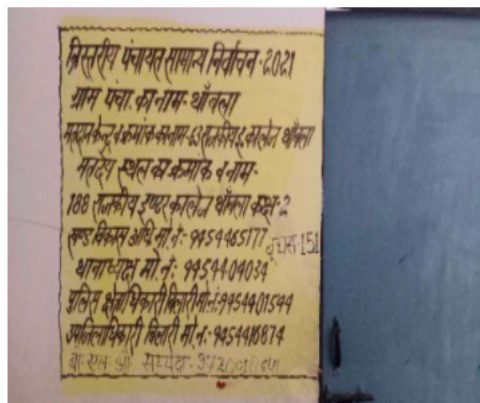 त्रिस्तरीय पंचायत सामान्य निर्वाचन-2021
ग्राम पंचा. का नाम- थाँवला
मतदान केन्द्र व क्रमांक का नाम-63 राजकीय इ. कालेज थाँवला
मतदेय स्थल का क्रमांक व नाम-
188 राजकीय इण्टर कालेज थाँवला कक्ष-2
खण्ड विकास अधि. मो. नं: 9454465177
बूथ सं-151
थानाध्यक्ष मो. नं: 9454404034
पुलिस क्षेत्राधिकारी बिलारी मो.नं: 9454401544
उपजिलाधिकारी बिलारी मो. नं: 9454416874
बी. एल. ओ.